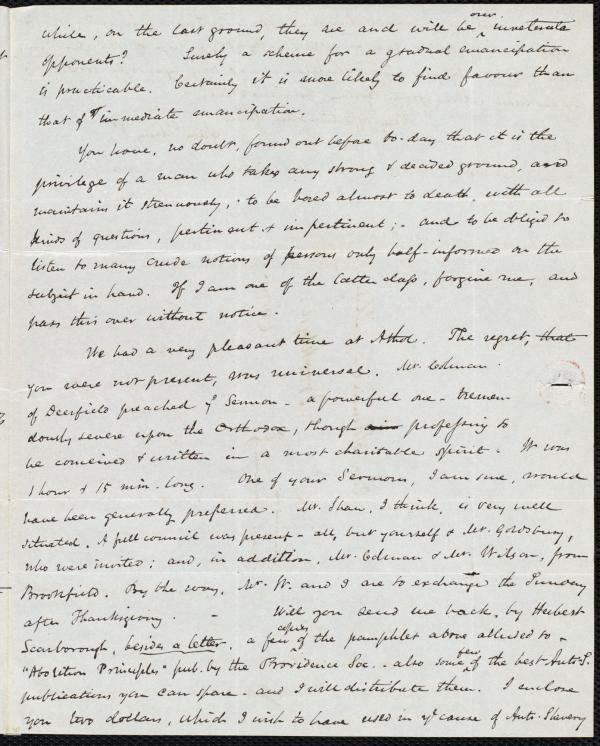 while, on the last ground, they are and will be our inveterate
opponents? Surely a scheme for a gradual emancipation
is practicable. Certainly it is more likely to find favour than
that of immediate emancipation.
You have, no doubt, found out before to-day that it is the
privilege of a man who takes any strong & decided ground, and
maintains it strenuously, to be bored almost to death, with all
kinds of questions, pertinent & impertinent; - and to be obliged to
listen to many crude notions of persons only half-informed on the
subject in hand. If I am one of the latter class, forgive me, and
pass this over without notice.
We had a very pleasant time at Athol. The regret, that
you were not present, was universal. Mr. Colman
of Deerfield preached ye Sermon - a powerful one - tremen-
dously severe upon the Orthodox, though professing to
be conceived & written in a most charitable spirit. It was
1 hour & 15 min. long. One of your Sermons, I am sure, would
have been generally preferred. Mr. Shaw, I think, is very well
situated. A full council was present - all, but yourself & Mr. Goldsbury,
who were invited; and, in addition, Mr. Colman & Mr. Wilson, from
Brookfield. By the way, Mr. W. and I are to exchange the Sunday
after Thanksgiving. - Will you send me back, by Herbert
Scarborough, besides a letter, a few copies of the pamphlet above alluded to -
"Abolition Principles" pub. by the Providence Soc. - also some few of the best Anti-S.
publications you can spare - and I will distribute them. I enclose
you two dollars, which I wish to have used in ye cause of Anti-Slavery